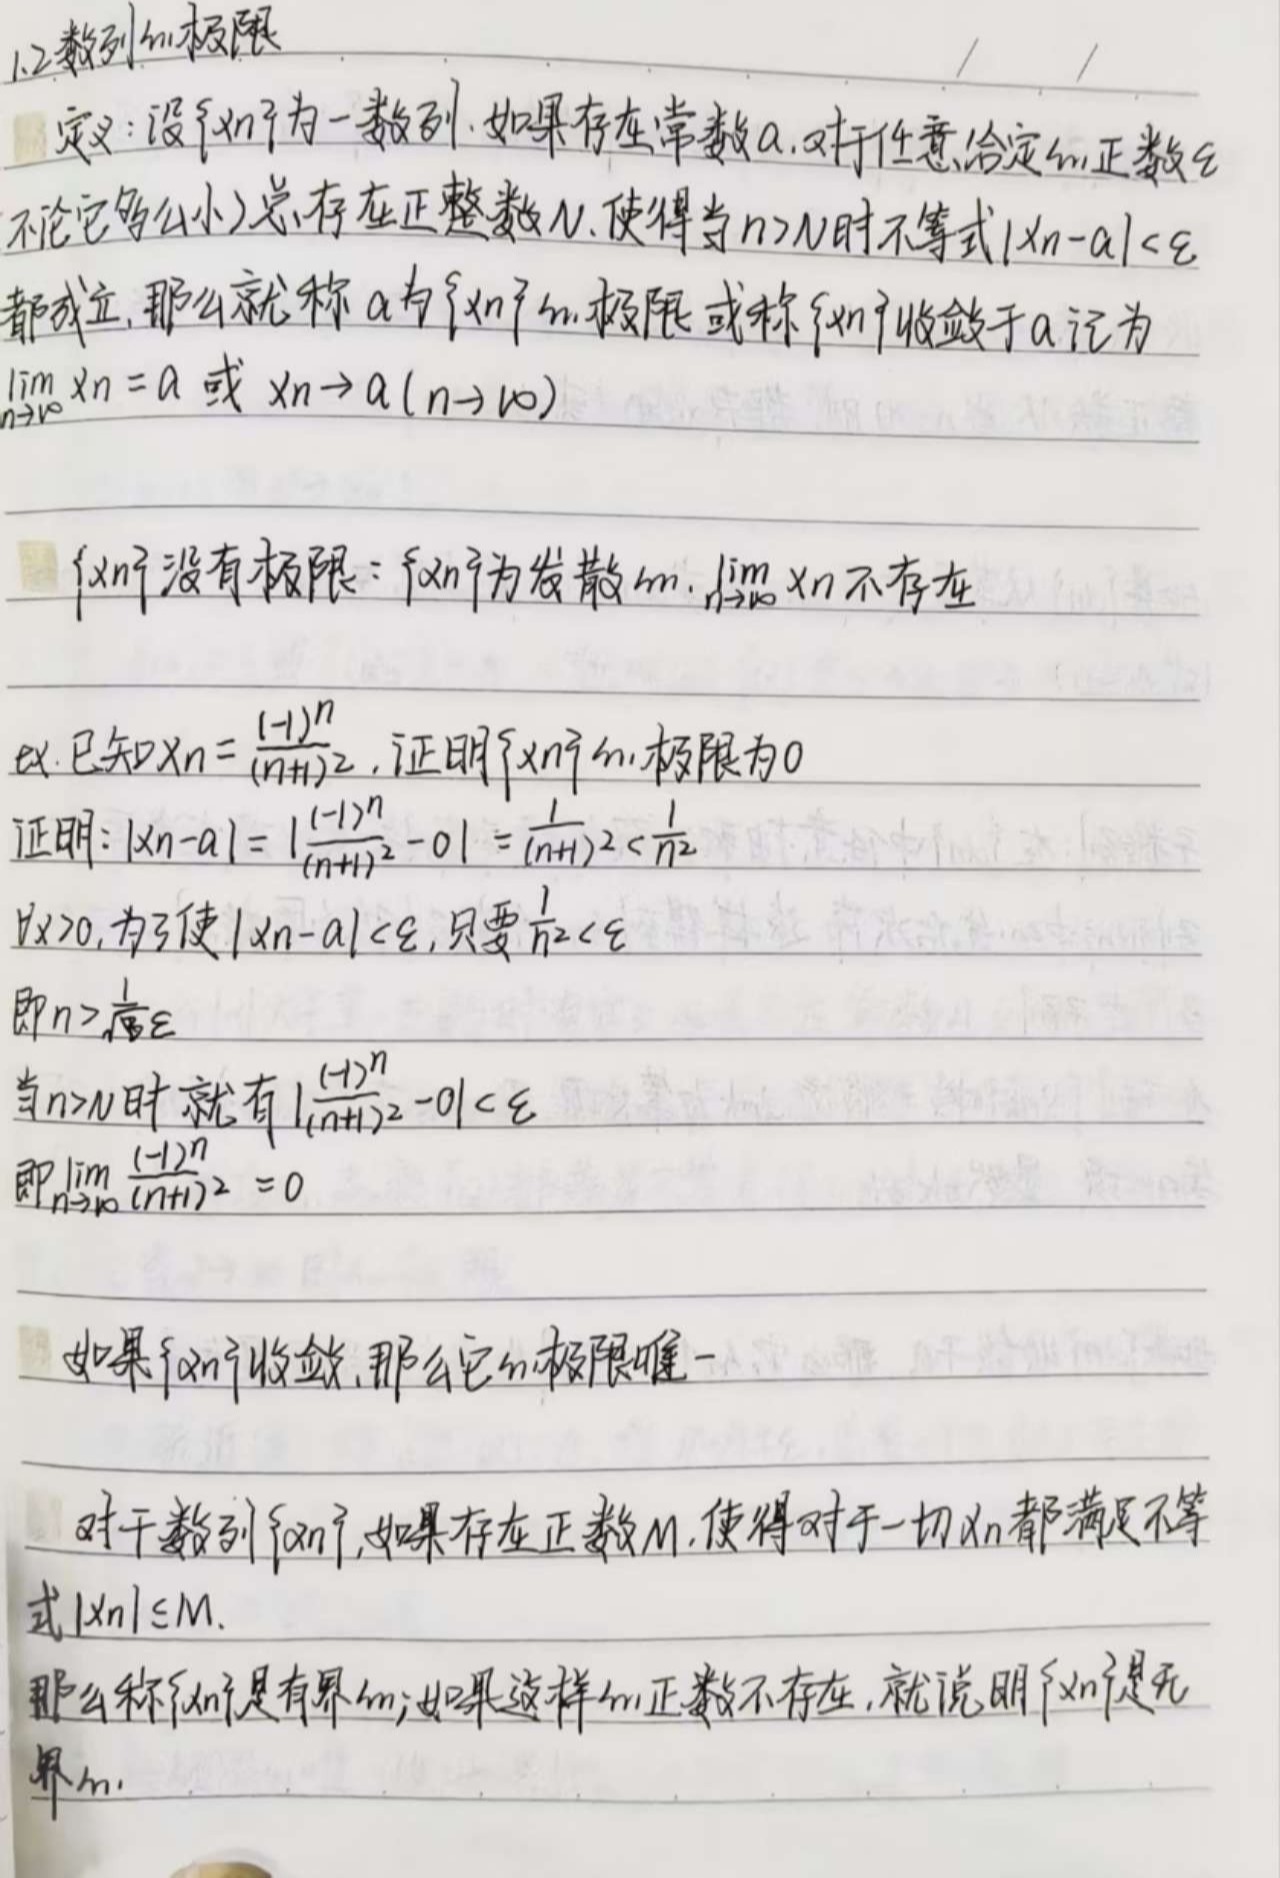 1.2 数列的极限
定义:设{xn}为一数列.如果存在常数a.对于任意给定的正数ε
不论它多么小)总存在正整数N.使得当n>N时不等式|xn-a|<ε
都成立,那么就称a为{xn}的极限或称{xn}收敛于a记为
lim n→∞ xn=a 或 xn→a(n→∞)
{xn}没有极限:{xn}为发散的. lim n→∞ xn不存在
ex.已知xn=(-1)^n/(n+1)^2,证明{xn}的极限为0
证明:|xn-a|=|(-1)^n/(n+1)^2-0|=1/(n+1)^2<1/n^2
∀x>0,为了使|xn-a|<ε,只要1/n^2<ε
即n>1/√ε
当n>N时就有|(-1)^n/(n+1)^2-0|<ε
即lim n→∞ (-1)^n/(n+1)^2=0
如果{xn}收敛,那么它的极限唯一
对于数列{xn},如果存在正数M.使得对于一切xn都满足不等
式|xn|≤M.
那么称{xn}是有界的;如果这样的正数不存在.就说明{xn}是无
界的.